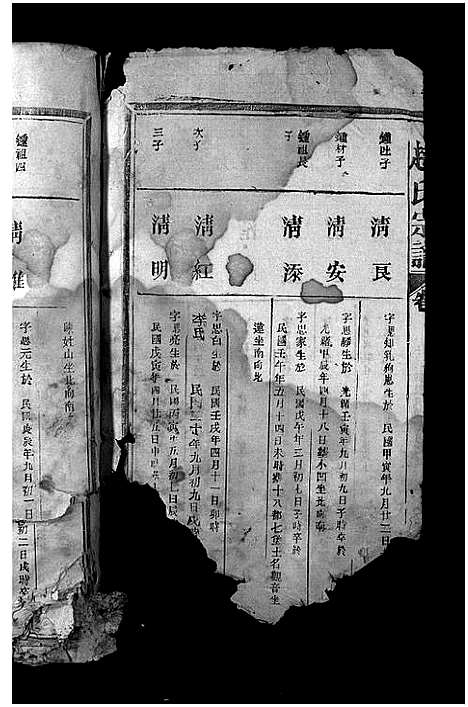 趙氏宗譜 卷
鍾吐子
清良
字思知乳狗崽生於 民國甲寅年九月廿三日
鍾材子
清安
字思驛生於 光緒壬寅年九月初九日子時卒於
光緒甲辰年四月十八日葬木凹坐北向南
鍾祖長子
清添
字思家生於 民國戊午年三月初七日子時卒於
民國壬午年五月十四日未時葬十八都七堡土名觀音坐
蓮坐南向北
次子
清紅
字思白生於 民國壬戌年四月十一日卯時
李氏 民國 十年九月初九日戌時
三子
清明
字思亮生於 民國丙寅年五月初十日辰
民國戊寅年四月廿五日申時
鍾祖四
清雄
陳姓山坐北向南
字思元生於 民國庚辰年九月初一日
初二日戌時卒